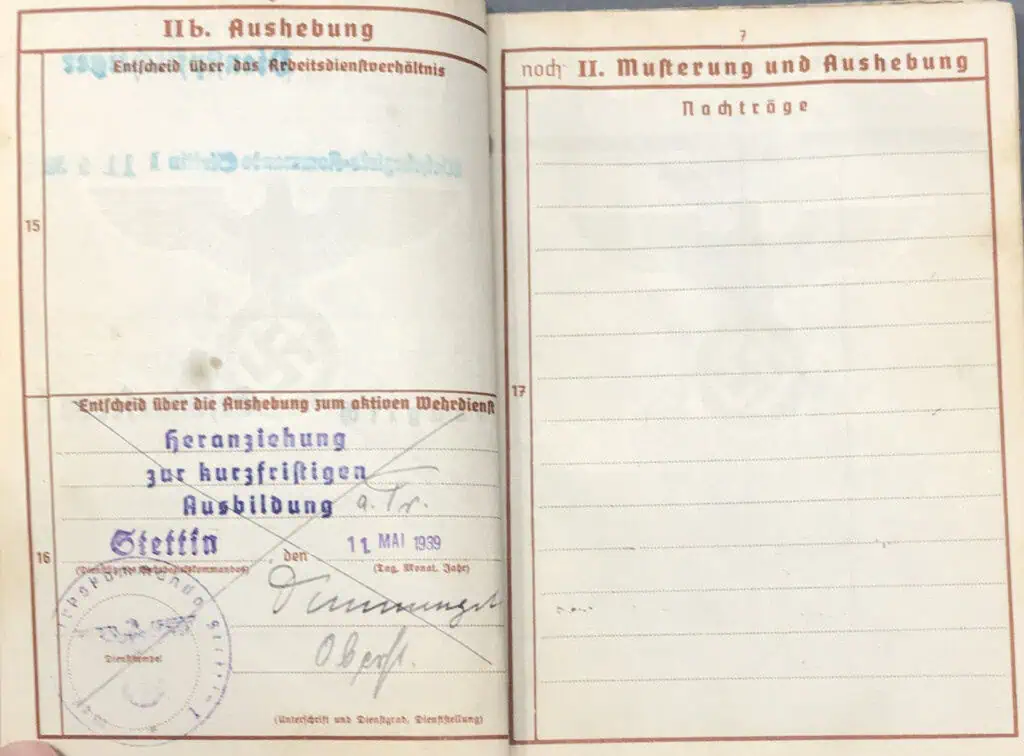 IIb. Aushebung
Entscheid über das Arbeitsdienstverhältnis
15
Entscheid über die Aushebung zum aktiven Wehrdienst
Heranziehung
zur kurzfristigen
Ausbildung a. Tr.
Stettin den 11. MAI 1939
16
(Tag, Monat, Jahr)
Dienststempel
Oberst.
(Unterschrift und Dienstgrad, Dienststellung)
7
noch II. Musterung und Aushebung
Nachträge
17